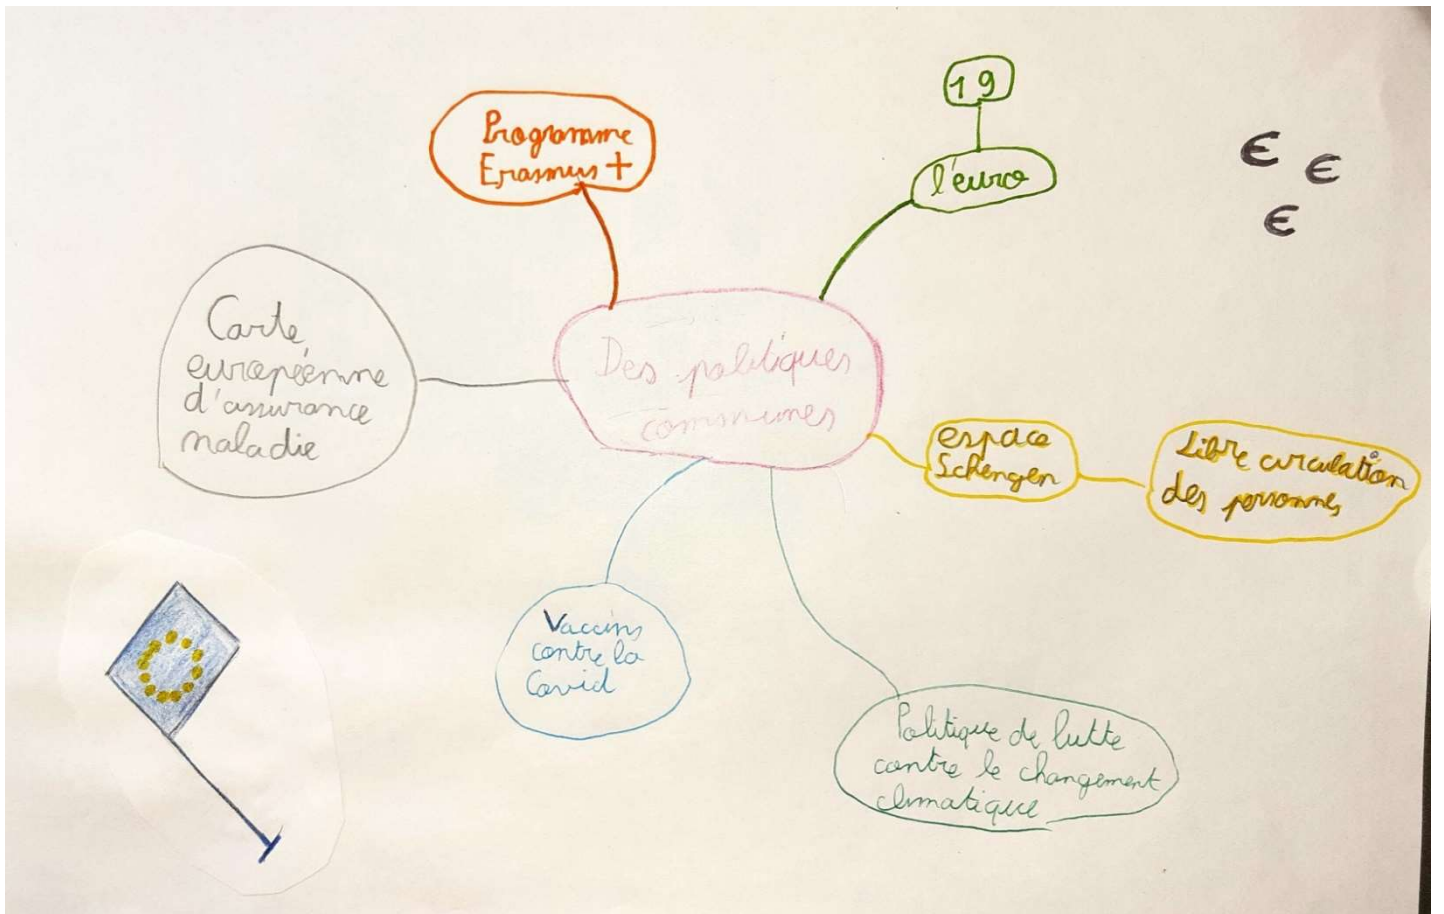 19
l'euro
Programme
Erasmus +
€ €
€
Carte
européenne
d'assurance
maladie
Des politiques
communes
espace
Schengen
Libre circulation
des personnes
Vaccins
contre la
Covid
Politique de lutte
contre le changement
climatique